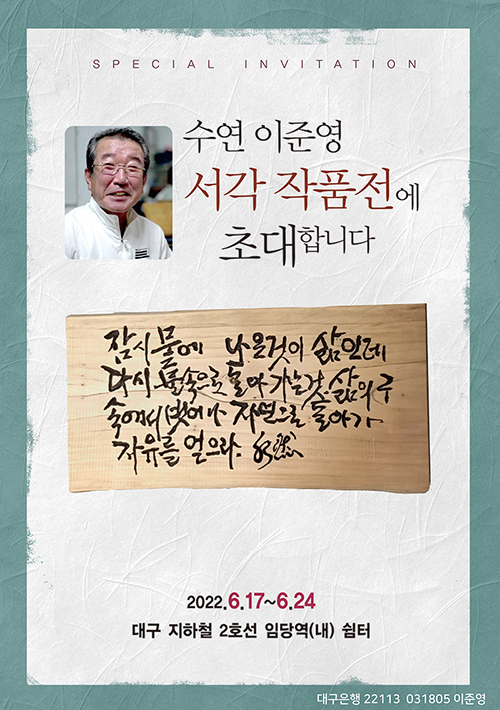 SPECIAL INVITATION
수연 이준영
서각 작품전에
초대합니다
잠시 물에 나온것이 삶인데
다시 물속으로 돌아가는것 삶의 구
속에서 벗어나 자연으로 돌아가
자유를 얻으라.
2022.6.17~6.24
대구 지하철 2호선 임당역(내) 쉼터
대구은행 22113 031805 이준영